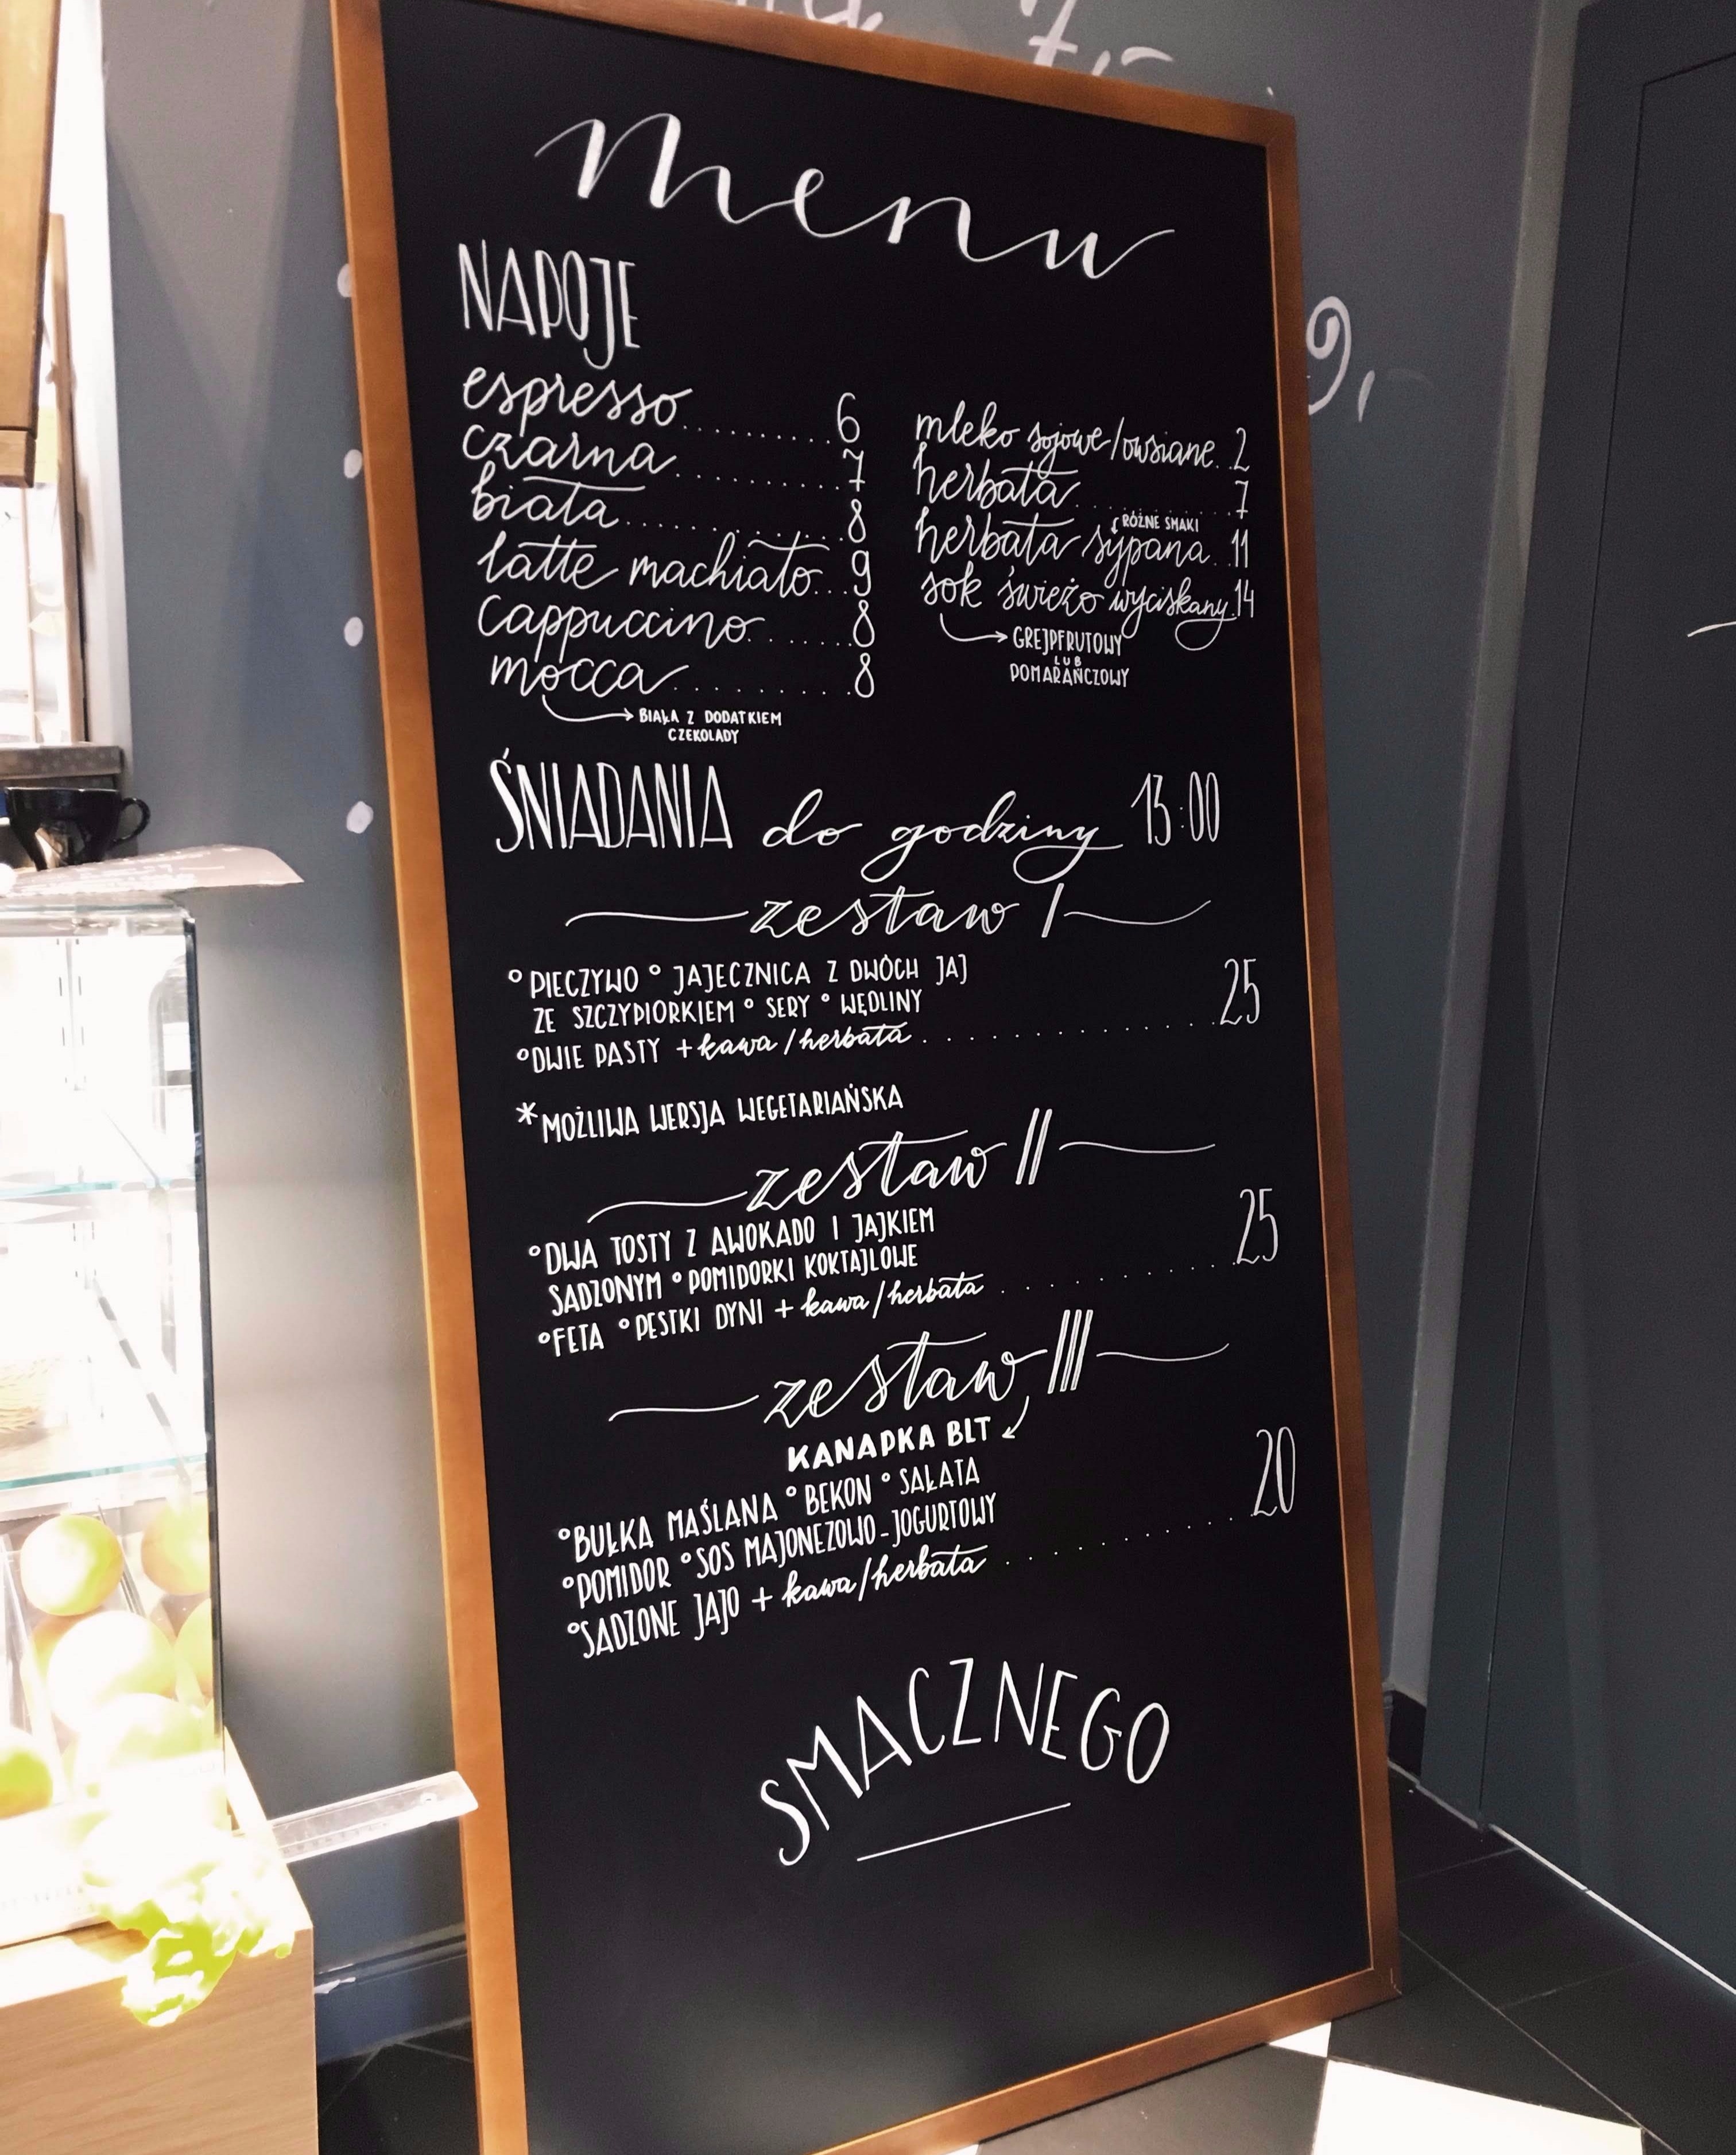 7,-
menu
9,-
NAPOJE
espresso.........6
czarna..........7
biała..........8
latte machiato...9
cappuccino......8
mocca.........8
BIAŁA Z DODATKIEM
CZEKOLADY
mleko sojowe/owsiane..2
herbata.........7
RÓŻNE SMAKI
herbata sypana..11
sok świeżo wyciskany.14
GREJPFRUTOWY
LUB
POMARAŃCZOWY
ŚNIADANIA do godziny 13:00
zestaw I
° PIECZYWO ° JAJECZNICA Z DWÓCH JAJ
ZE SZCZYPIORKIEM ° SERY ° WĘDLINY
° DWIE PASTY + kawa/herbata.............25
*MOŻLIWA WERSJA WEGETARIAŃSKA
zestaw II
° DWA TOSTY Z AWOKADO I JAJKIEM
SADZONYM ° POMIDORKI KOKTAJLOWE
° FETA ° PESTKI DYNI + kawa/herbata..........25
zestaw III
KANAPKA BLT
° BUŁKA MAŚLANA ° BEKON ° SAŁATA
° POMIDOR ° SOS MAJONEZOWO-JOGURTOWY
° SADZONE JAJO + kawa/herbata..........20
SMACZNEGO